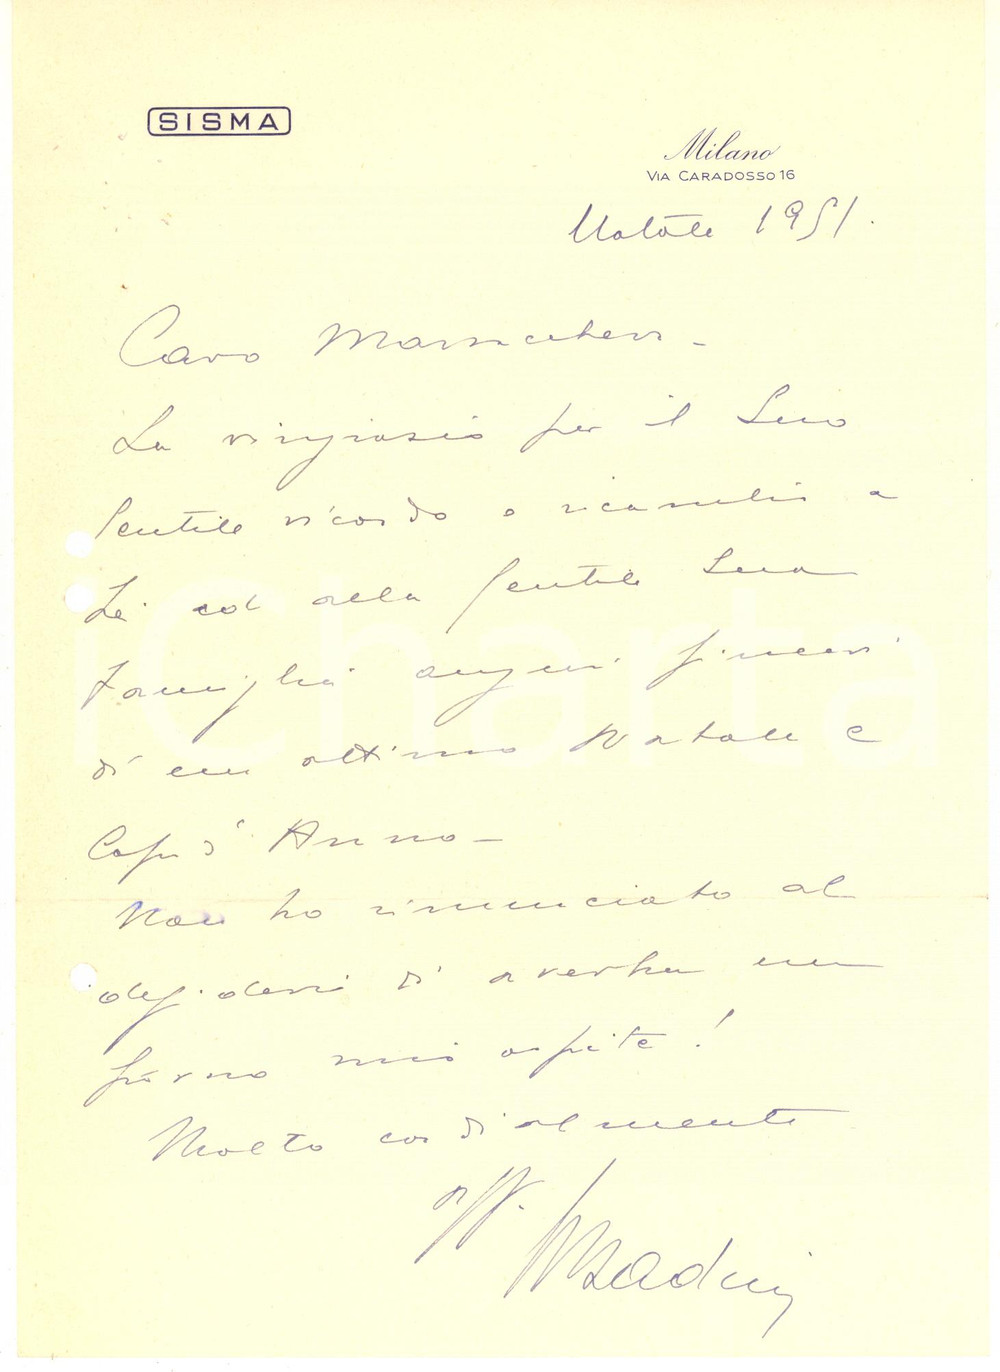 SISMA
Milano
VIA CARADOSSO 16
Natale 1951.
Caro
La ringrazio per il Suo
gentile ricordo e ricambio a
Lei ed alla gentile Sua
famiglia auguri sinceri
di un ottimo Natale e
Capo d'Anno -
Non ho rinunciato al
desiderio di averla un
giorno mio ospite!
Molto cordialmente
aff.
iCharta